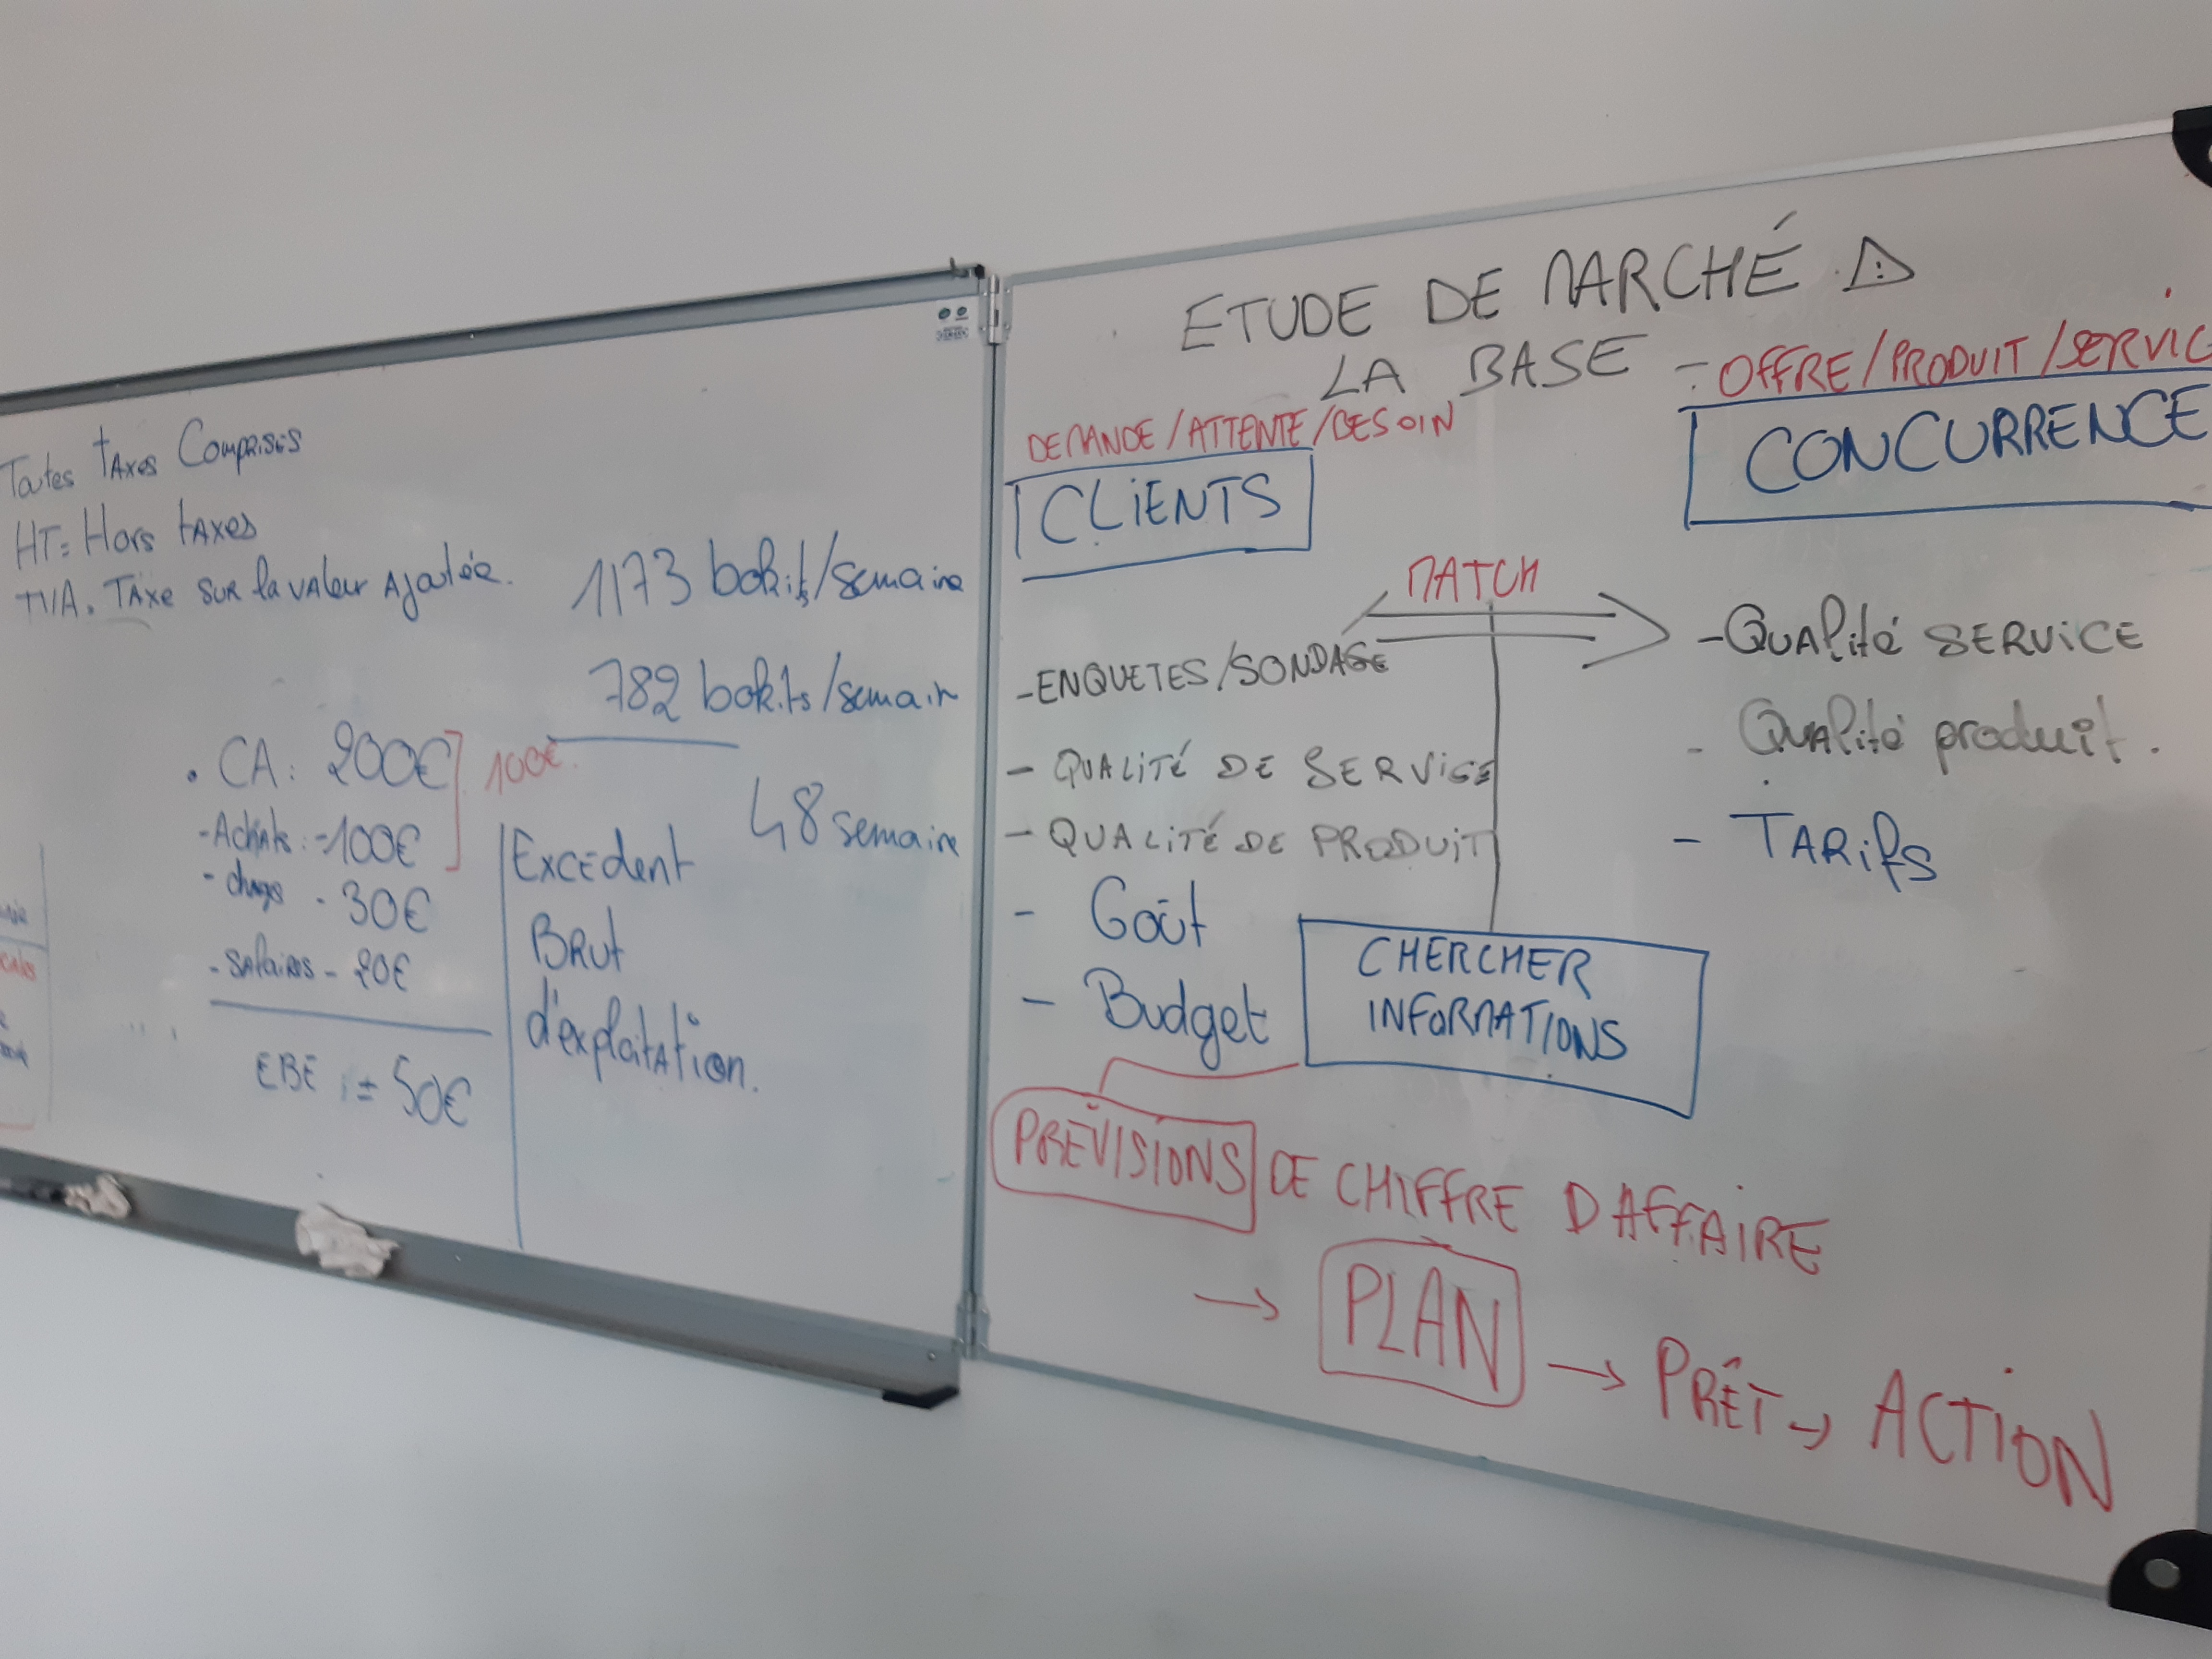 Toutes taxes Comprises
HT= Hors taxes
TVA. Taxe sur la valeur Ajoutée.
1173 bokits/semaine
782 bokits/semain
48 semaine
. CA: 200€ 100€.
- Achats: -100€
- - 30€
- Salaires - 20€
EBE := 50€
Excedent
Brut
d'exploitation.
ETUDE DE MARCHÉ
LA BASE
DEMANDE/ATTENTE/BESOIN
CLIENTS
- OFFRE/PRODUIT/SERVIC
CONCURRENCE
MATCH
-ENQUETES/SONDAGE
- QUALITÉ DE SERVICE
- QUALITÉ DE PRODUIT
- Goût
- Budget
- Qualité SERVICE
- Qualité produit.
- TARifs
CHERCHER
INFORMATIONS
PRÉVISIONS DE CHIFFRE D'AFFAIRE
→ PLAN → PRÊT → ACTION